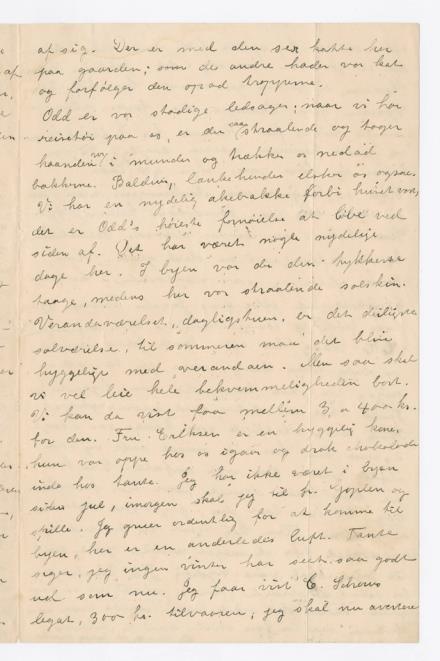 af sig. Der er med den sex katte her
paa gaarden; som de andre hader vor kat
og forfølger den opad trapperne.
Odd er vor stadige ledsager; naar vi har
reisetøi paa os, er den saa straalende og tager
haanden vor i munden og trækker os nedad
bakkerne. Baldur, lænkehunden elsker os ogsaa.
Vi har en nydelig akebakke forbi huset vort,
det er Odd's høieste fornøielse at løbe ved
siden af. Det har været nogle nydelige
dage her. I byen var der den tykkeste
taage, medens her var straalende solskin.
Verandaværelset, dagligstuen, er det deiligste
solværelse, til sommeren maa det blive
hyggelige med verandaen. Men saa skal
vi vel leie hele bekvemmeligheden bort.
Vi kan da vist faa mellem 3 a 400 kr.
for den. Fru Eriksen er en hyggelig kone,
hun var oppe hos os igaar og drak chokolade
inde hos tante. Jeg har ikke været i byen
siden jul, imorgen skal jeg til hr. og
spille. Jeg gruer ordentlig for at komme til
byen, her er en anderledes luft. Tante
siger, jeg ingen vinter har seet saa godt
ud som nu. Jeg faar vist C. Schous
legat, 300 kr. tilvaaren, jeg skal nu avertere